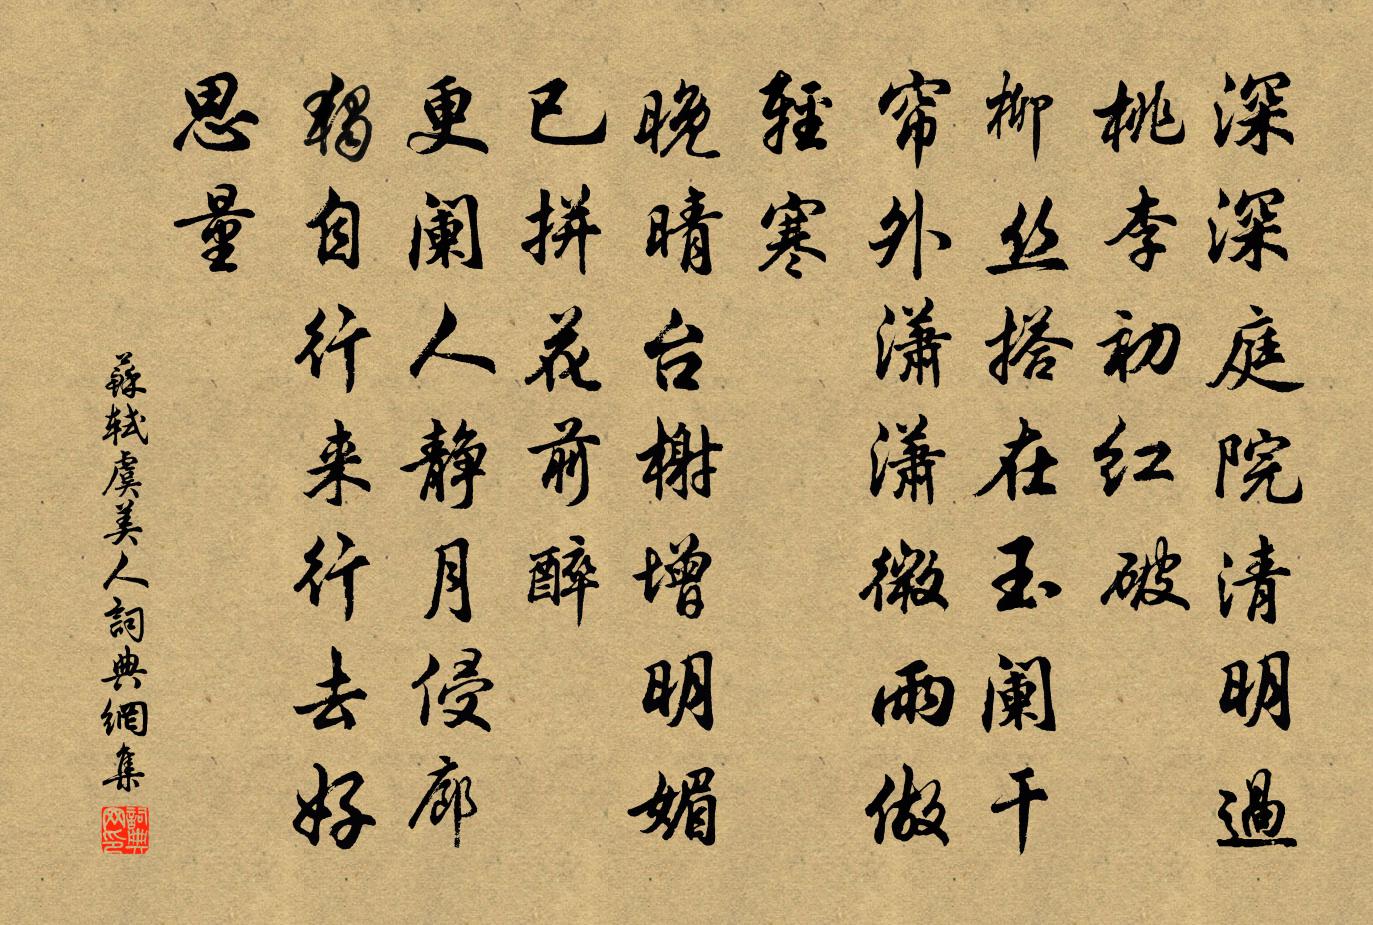 深深庭院清明過
桃李初红破
柳丝搭在玉阑干
帘外潇潇微雨做
輕寒
晚晴台榭增明媚
已拼花前醉
更阑人静月侵廊
獨自行来行去好
思量
蘇軾虞美人詞典網集
詞典网印